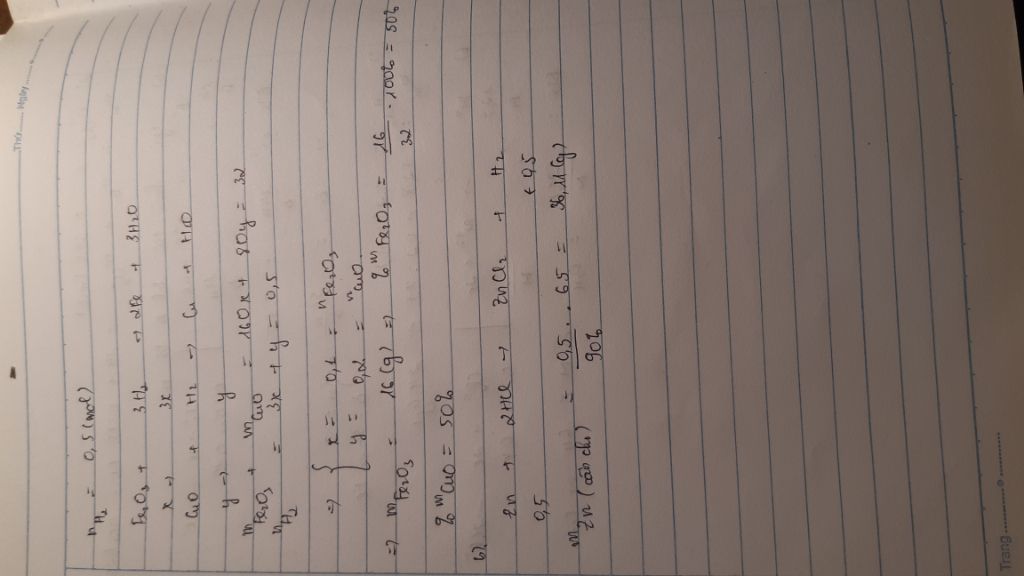 Thứ ...... Ngày ......
n H₂ = 0,5 (mol)
Fe₂O₃ + 3H₂ → 2Fe + 3H₂O
x → 3x
CuO + H₂ → Cu + H₂O
y → y
m Fe₂O₃ + m CuO = 160x + 80y = 32
n H₂ = 3x + y = 0,5
⇒ { x = 0,1 = n Fe₂O₃
y = 0,2 = n CuO
⇒ m Fe₂O₃ = 16 (g) ⇒ % m Fe₂O₃ = 16/32 . 100% = 50%
% m CuO = 50%
b)
Zn + 2HCl → ZnCl₂ + H₂
0,5 ← 0,5
m Zn (cần dùng) = 0,5 . 65 / 90% = 36,11 (g)
Trang